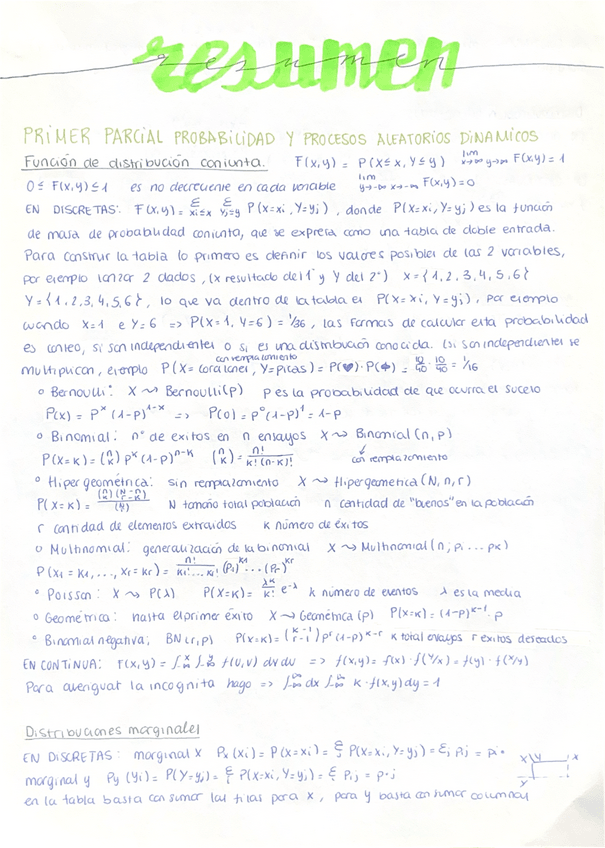 resumen
PRIMER PARCIAL PROBABILIDAD Y PROCESOS ALEATORIOS DINAMICOS
Función de distribución conjunta. F(x,y) = P(X≤x, Y≤y) lim x→∞ y→∞ F(x,y) = 1
0 ≤ F(x,y) ≤ 1 es no decreciente en cada variable lim y→-∞ x→-∞ F(x,y) = 0
EN DISCRETAS: F(x,y) = Σ xi≤x Σ yj≤y P(X=xi, Y=yj), donde P(X=xi, Y=yj) es la función
de masa de probabilidad conjunta, que se expresa como una tabla de doble entrada.
Para construir la tabla lo primero es definir los valores posibles de las 2 variables,
por ejemplo lanzar 2 dados, (x resultado del 1° y Y del 2°) X = {1,2,3,4,5,6}
Y = {1,2,3,4,5,6}, lo que va dentro de la tabla es P(X=xi, Y=yj), por ejemplo
cuando X=1 e Y=6 => P(X=1, Y=6) = 1/36, las formas de calcular esta probabilidad
es conteo, si son independientes o si es una distribución conocida. (si son independientes se
multiplican, ejemplo P(X=corazones, Y=picas) = P(♥)·P(♠) = 10/40 · 10/40 = 1/16
con remplazamiento
° Bernoulli: X ↝ Bernoulli(p) p es la probabilidad de que ocurra el suceso
P(x) = p^x (1-p)^1-x => P(0) = p^0 (1-p)^1 = 1-p
° Binomial: n° de exitos en n ensayos X ↝ Binomial (n,p)
P(X=k) = (n k) p^k (1-p)^n-k (n k) = n!/k!(n-k)! con remplazamiento
° Hipergeométrica: sin remplazamiento X ↝ Hipergeometrica (N, n, r)
P(X=k) = (n k)(N-n r-k)/(N r) N tamaño total población n cantidad de "buenos" en la población
r cantidad de elementos extraidos k número de éxitos
° Multinomial: generalización de la binomial X ↝ Multinomial (n; p1 ... pk)
P(X1 = k1, ..., Xr = kr) = n!/k1!...kr! (p1)^k1 ... (pr)^kr
° Poisson: X ↝ P(λ) P(X=k) = λ^k/k! e^-λ k número de eventos λ es la media
° Geométrica: hasta el primer éxito X ↝ Geométrica (p) P(X=k) = (1-p)^k-1 · p
° Binomial negativa: BN(r,p) P(X=k) = (k-1 r-1) p^r (1-p)^k-r k total ensayos r éxitos deseados
EN CONTINUA: F(x,y) = ∫-∞ x ∫-∞ y f(u,v) dv du => f(x,y) = f(x) · f(y/x) = f(y) · f(x/y)
Para averiguar la incognita hago => ∫-∞ ∞ dx ∫-∞ ∞ k·f(x,y) dy = 1
Distribuciones marginales
EN DISCRETAS: marginal X Px(xi) = P(X=xi) = Σj P(X=xi, Y=yj) = Σj pij = pi•
marginal y Py(yj) = P(Y=yj) = Σi P(X=xi, Y=yj) = Σi pij = p•j
en la tabla basta con sumar las filas para x, para y basta con sumar columnas
X\Y X
Y